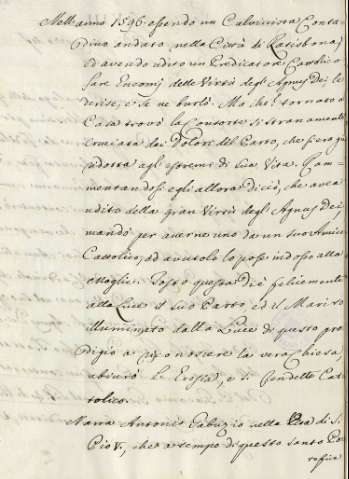 Nell'anno 1596 essendo un Calvinista Conta-
dino andato nella Città di Ratisbona,
ed avendo udito un Predicatore Cattolico
fare Encomj delle Virtù degl'Agnus Dei, le
derise, e se ne burlò. Ma che? tornato a
Casa trovò la Consorte sì stranamente
cruciata dai Dolori del Parto, che si era ri
dotta agl'estremi di sua Vita. Ram-
mentandosi egli allora di ciò, che avea
udito della gran Virtù degl'Agnus Dei,
mandò per averne uno da un suo Amico
Cattolico, ed avutolo lo pose indosso alla
Moglie. Tosto questa diè felicemente
alla Luce il suo Parto, ed il Marito
illuminato dalla Luce di questo pro
digio a riconoscere la vera Chiesa,
abiurò le Eresie, e si rendette Cat-
tolico.
Maria Antonio Gabuzio nella Vita di S.
Pio V, che a tempo di questo Santo Pon
tefice